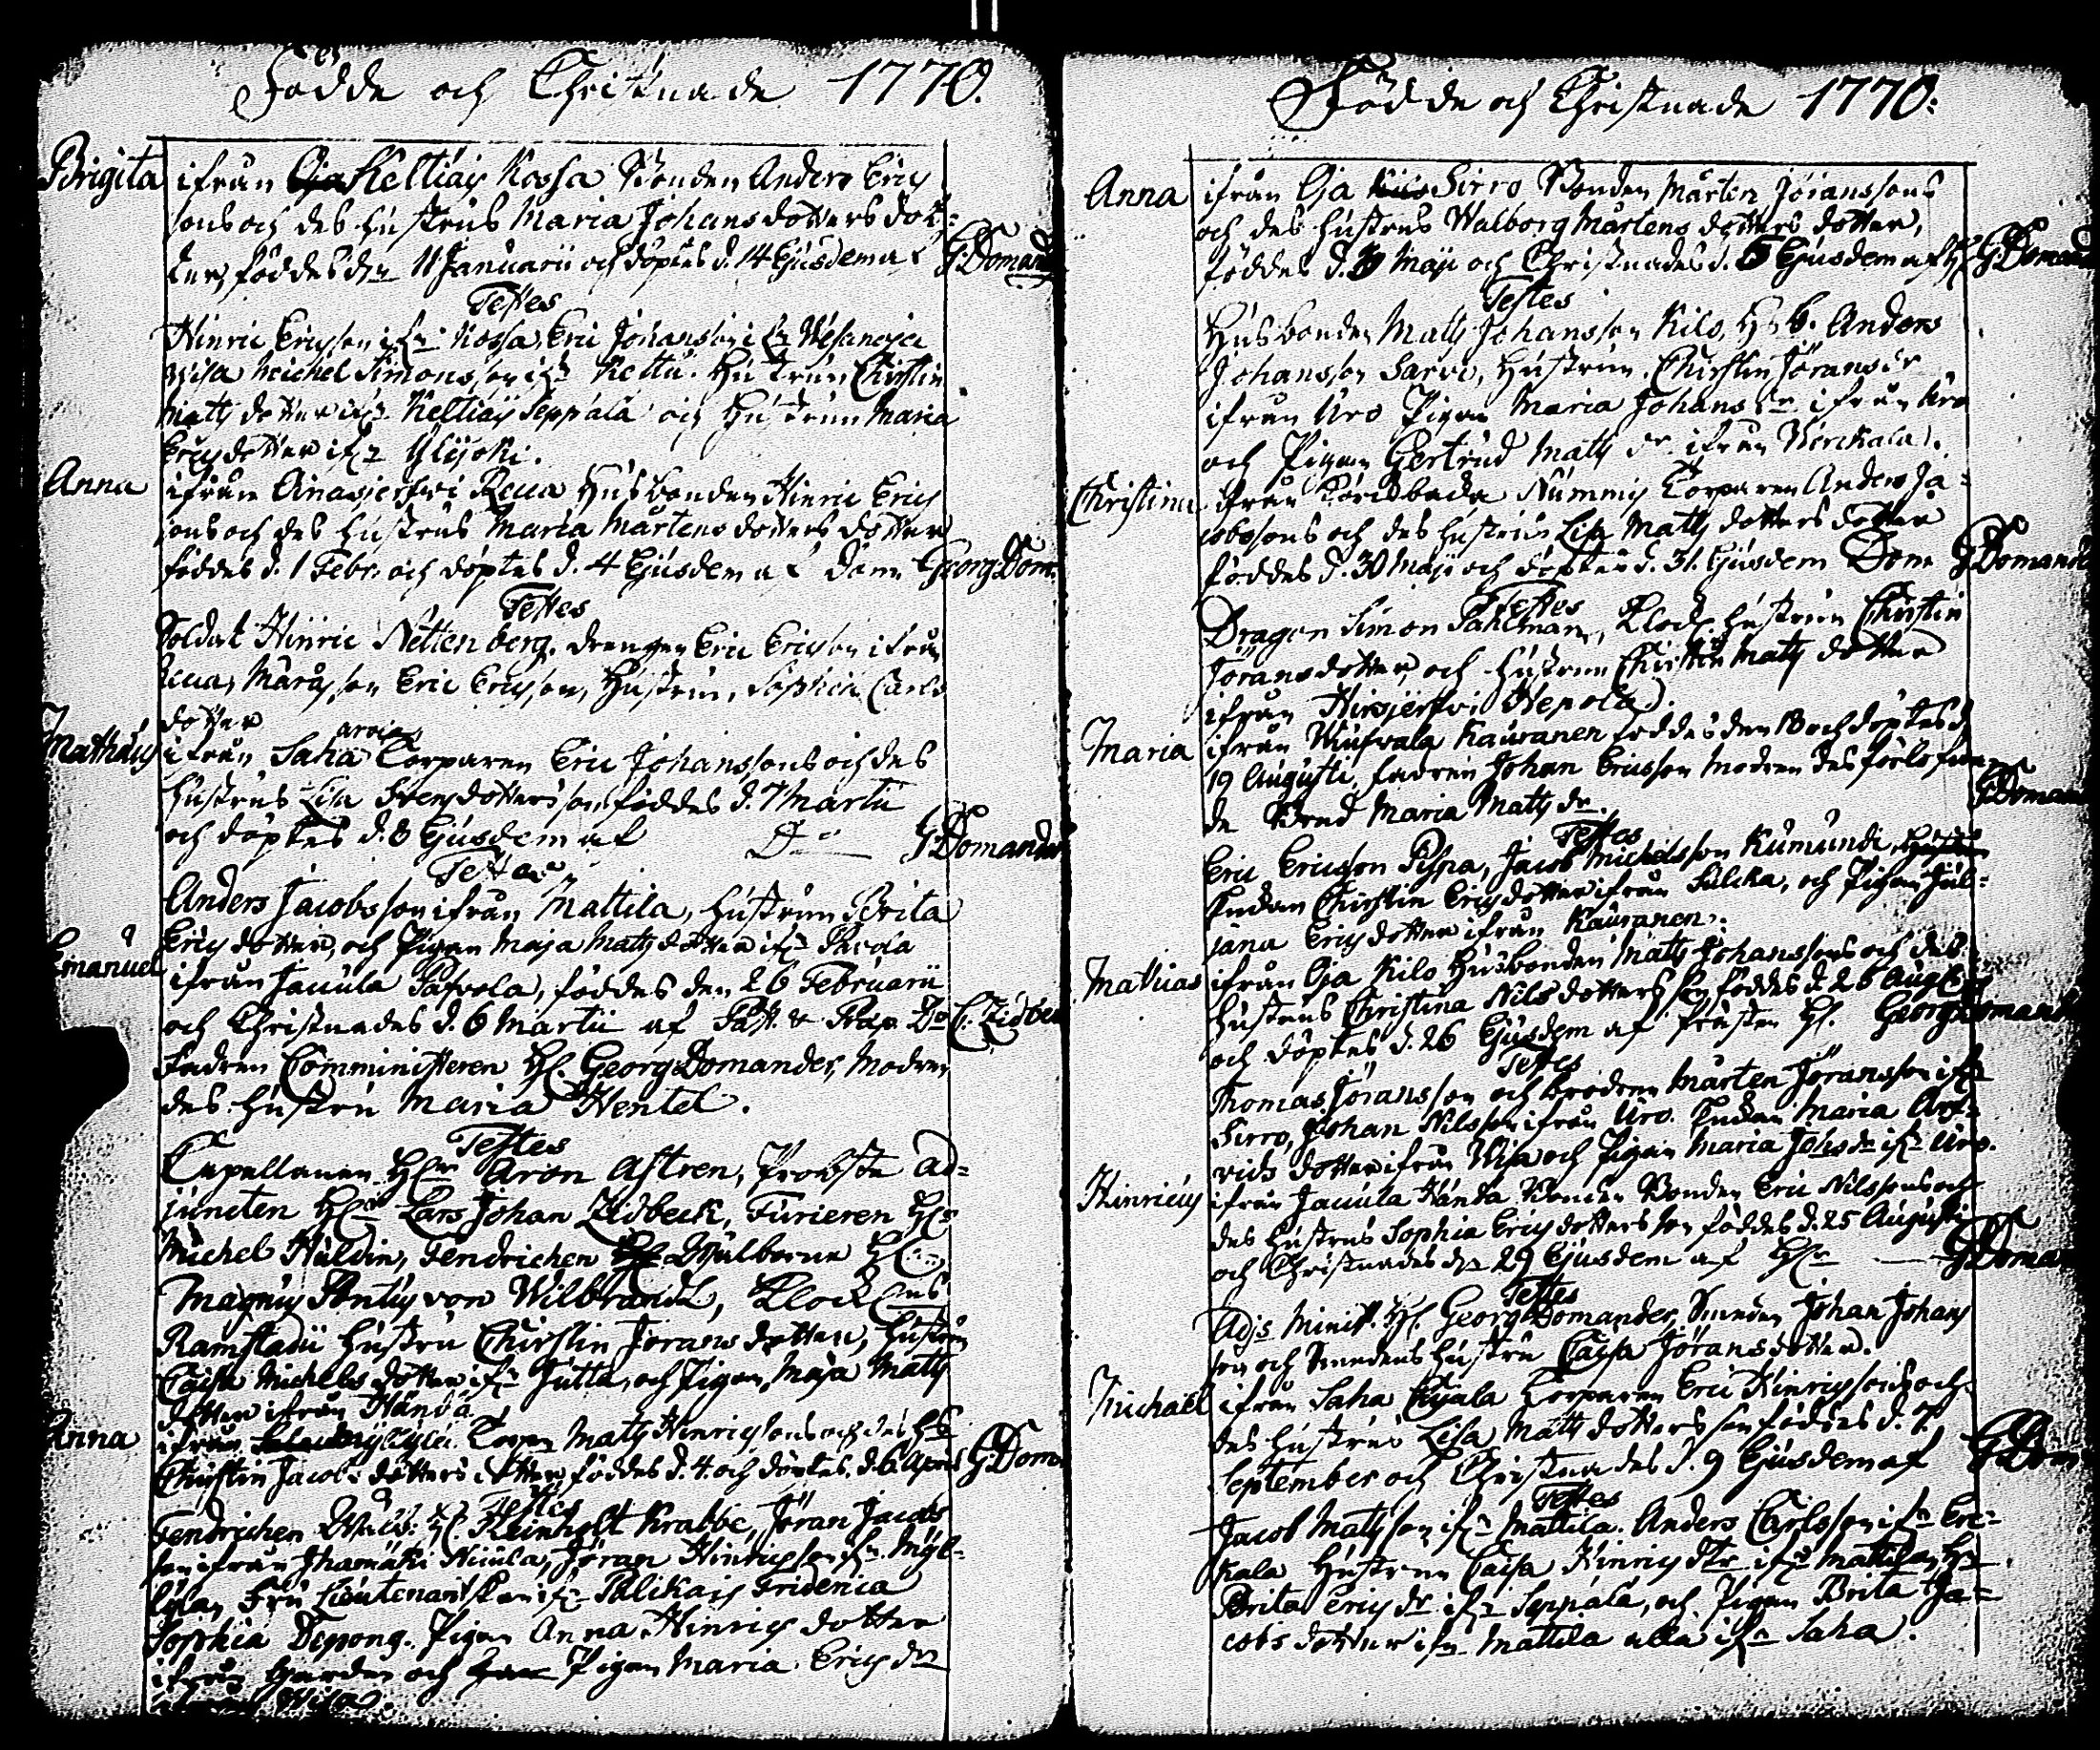 Födde och Christnade 1770.
Brigita ifrån Keltiäis Kossa Bonden Anders Erics
sons och des hustrus Maria Johansdotters dot-
ter, föddes den 11 Januarii och döptes d. 14 Ejusdem af G: Domand
Testes
Hinric Ericsson ifrn Kossa, Eric Johansson ifrn
Wisa Michel Simonsson ifrn Kettu. Hustrun Chirstin
Matts dotter ifrn Keltiäis Seppälä och Hustrun Maria
Ericsdotter ifrn Ylijoki.
Anna ifrån Ainasjerfvi Recua Husbonden Hinric Erics
sons och des hustrus Maria Mårtens dotters dotter
föddes d. 1 Febr. och döptes d. 4 Ejusdem af Dom Georg Dom.
Testes
Soldat Hinric Nettenberg. drengen Eric Ericsson ifrån
Ericsson, Hustrun, Sophia Carls
dotter
Mathæus ifrån Saha Torparen Eric Johanssons och des
hustrus Lisa Svensdotters son föddes d. 7 Martii
och döptes d. 8 Ejusdem af G Domander
Testes
Anders Jacobsson ifrån Mattila, hustrun Brita
Erics dotter, och Pigan Maja Mattsdotter ifrn
Emanuel ifrån Jauula Pafvola, föddes den 26 Februarii
och Christnades d. 6 Martii af Past. & Præp. Dn C. Lidbeck
Fadren Comministeren H. Georg Domander, Modren
des hustru Maria Hentel.
Testes
Capellanen Hr Aron Astren, Probste ad-
juncten Hr Lars Johan Lidbeck, Furieren Hr
Michel Huldin, Fendrichen Wälborne H
Magnus Pontus von Wilbrandt, Klock
Ramstadii hustru Chirstin Jörans dotter, hustrun
Caisa Michels dotter ifrn Jutta, och Pigan Maja Matts
dotter ifrån Händä
Anna ifrån Torp. Matts Hinricssons och des h
Chirstin Jacobs dotters dotter föddes d. 4. och döptes. d. 6. Aprl G Dom.
Testes
Fendrichen Wälb: H. Reinholt Krabbe, Jöran Jacobs
son ifrån Niuula, Jöran Hinricsson ifn. Myl-
Fru Lieutenantskan ifn Palikais Fridenica
Sophia Depong. Pigan Anna Hinrics dotter
ifrån Gården och Pigan Maria Erics dr
ifrån Wisa.
Födde och Christnade 1770:
Anna ifrån Oja Sirro Bonden Mårten Jöranssons
och des hustrus Walborg Mårtens dotters dotter,
föddes d. 3 Maji och Christnades d. 6 Ejusdem af H. G: Domand
Testes
Husbonden Matts Johansson Kilo, Hsb. Anders
Johansson Sarvi, Hustrun. Chirstin Jörans dr
ifrån Uro Pigan Maria Johans dr ifrån Uro
och Pigan Gertrud Matts dr ifrån Wenckala.
Christina ifrån Nummis Torparen Anders Ja-
cobssons och des hustrus Lisa Matts dotters dotter
föddes d. 30 Maji och döptes d. 31. Ejusdem Dom G Domande
Testes
Dragon Simon Sahlman, Klock. hustrun Christin
Jöransdotter, och hustrun Chirstin Matts dotter
ifrån Hirsjerfvi Hepola.
Maria ifrån Kauranen föddes den 18 och döptes d.
19 Augusti, fadren Johan Ericsson modren des förlofva-
de Brud Maria Matts dr. G Doman
Testes
Eric Ericsson Pispa, Jacob Michelsson Kumundi,
Enckan Chirstin Ericsdotter ifrån Sulcka, och Pigan Jul-
jana Erics dotter ifrån Kauranen.
Mathias ifrån Oja Kilo Husbonden Matts Johanssons och des
hustrus Christina Nils dotters son föddes d. 25 Augusti
och döptes d. 26 Ejusdem af Prästen H. Georg Domand
Testes
Thomas Jöransson och brodren Mårten Jöransson ifrn
Sirro, Johan Nilsson ifrån Uro. Enckan Maria Arf-
vids dotter ifrån Wisa och Pigan Maria Johs dr ifrn Uro.
Hinricus ifrån Jauula Händä Bonden Bonden Eric Nilssons och
des hustrus Sophia Erics dotters son föddes d. 25 Augusti
och Christnades dn 29 Ejusdem af Hr G Doman
Testes
Adjs Minist. H. Georg Domander, Smeden Johan Johans
son och Smedens hustru Caisa Jöransdotter.
Michaël ifrån Saha Torparen Eric Hinricssons och
des hustrus Lisa Matts dotters son föddes d. 7.
September och Christnades d. 9 Ejusdem af G Dom
Testes
Jacob Mattsson ifrn Mattila. Anders Carlsson ifrn Er-
kala Hustrun Caisa Hinrics dtr ifrn Mattila, H
Brita Erics dr ifrn Seppälä, och Pigan Brita Ja-
cobs dotter ifrn Mattila alla ifrn Saha.